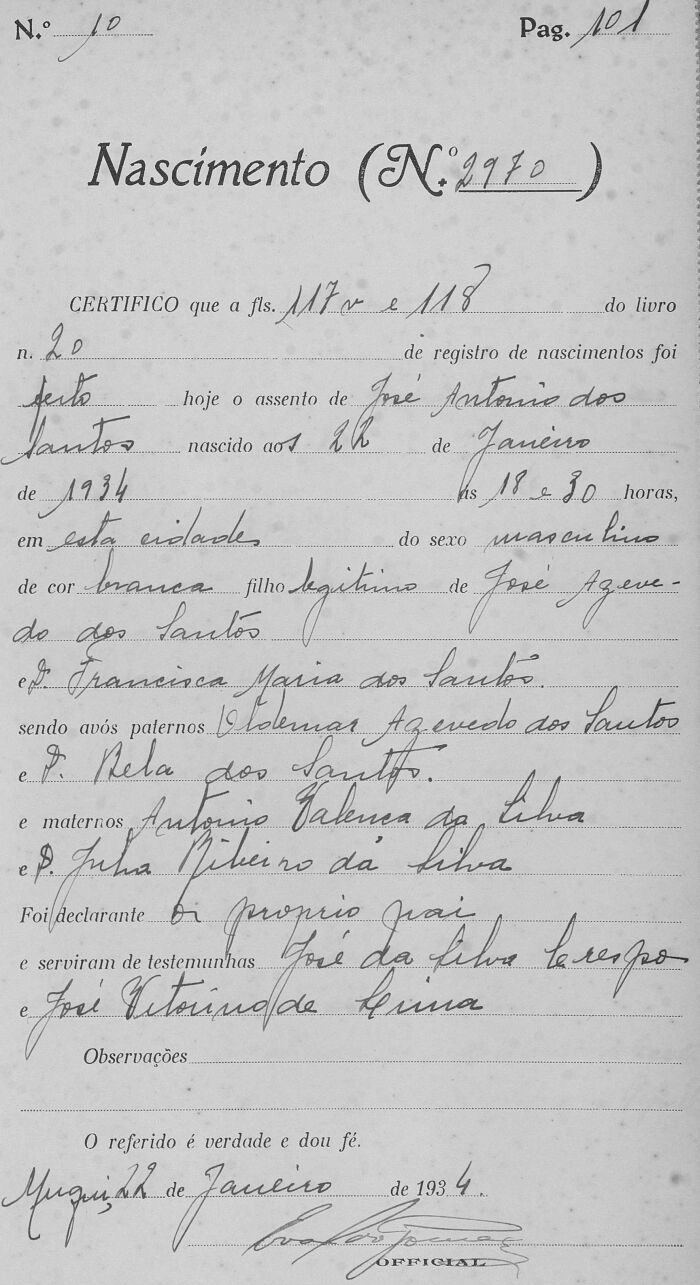 N.º 10 Pag. 101
Nascimento (N.º 2970)
CERTIFICO que a fls. 117 v e 118 do livro
n. 20 de registro de nascimentos foi
feito hoje o assento de José Antonio dos
Santos nascido aos 22 de Janeiro
de 1934 ás 18 e 30 horas,
em esta cidade do sexo masculino
de cor branca filho legitimo de José Azeve-
do dos Santos
e D. Francisca Maria dos Santos.
sendo avós paternos Oldemar Azevedo dos Santos
e D. Bela dos Santos.
e maternos Antonio Valença da Silva
e D. Julia Ribeiro da Silva
Foi declarante o proprio pai
e serviram de testemunhas José da Silva Crespo
e José Vitorino de Lima
Observações
O referido é verdade e dou fé.
Muqui, 22 de Janeiro de 1934.
OFFICIAL